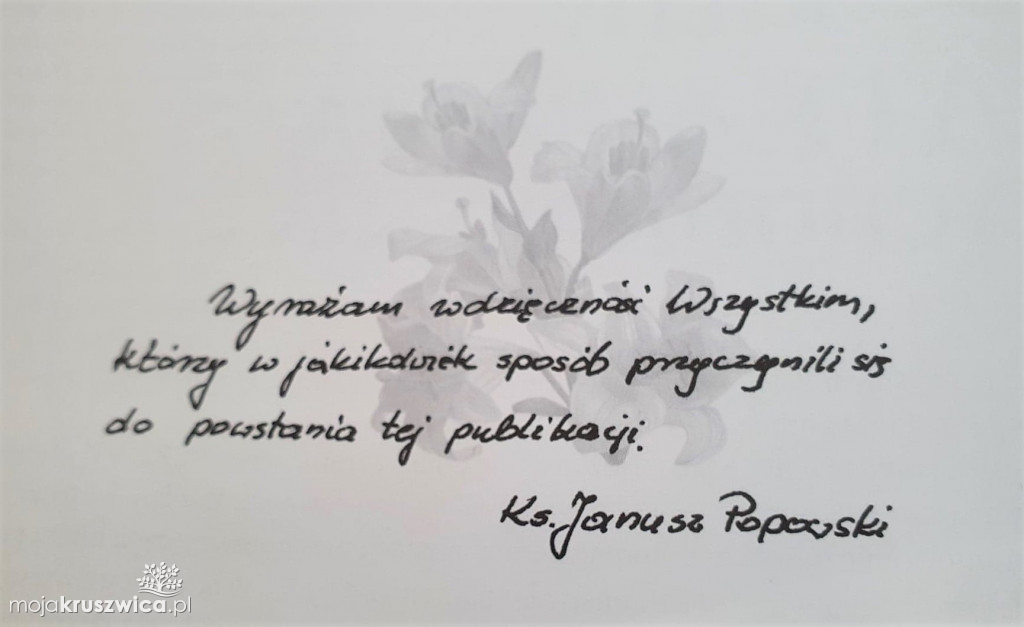 Wyrażam wdzięczność Wszystkim,
którzy w jakikolwiek sposób przyczynili się
do powstania tej publikacji.
Ks. Janusz Popowski
mojakruszwica.pl